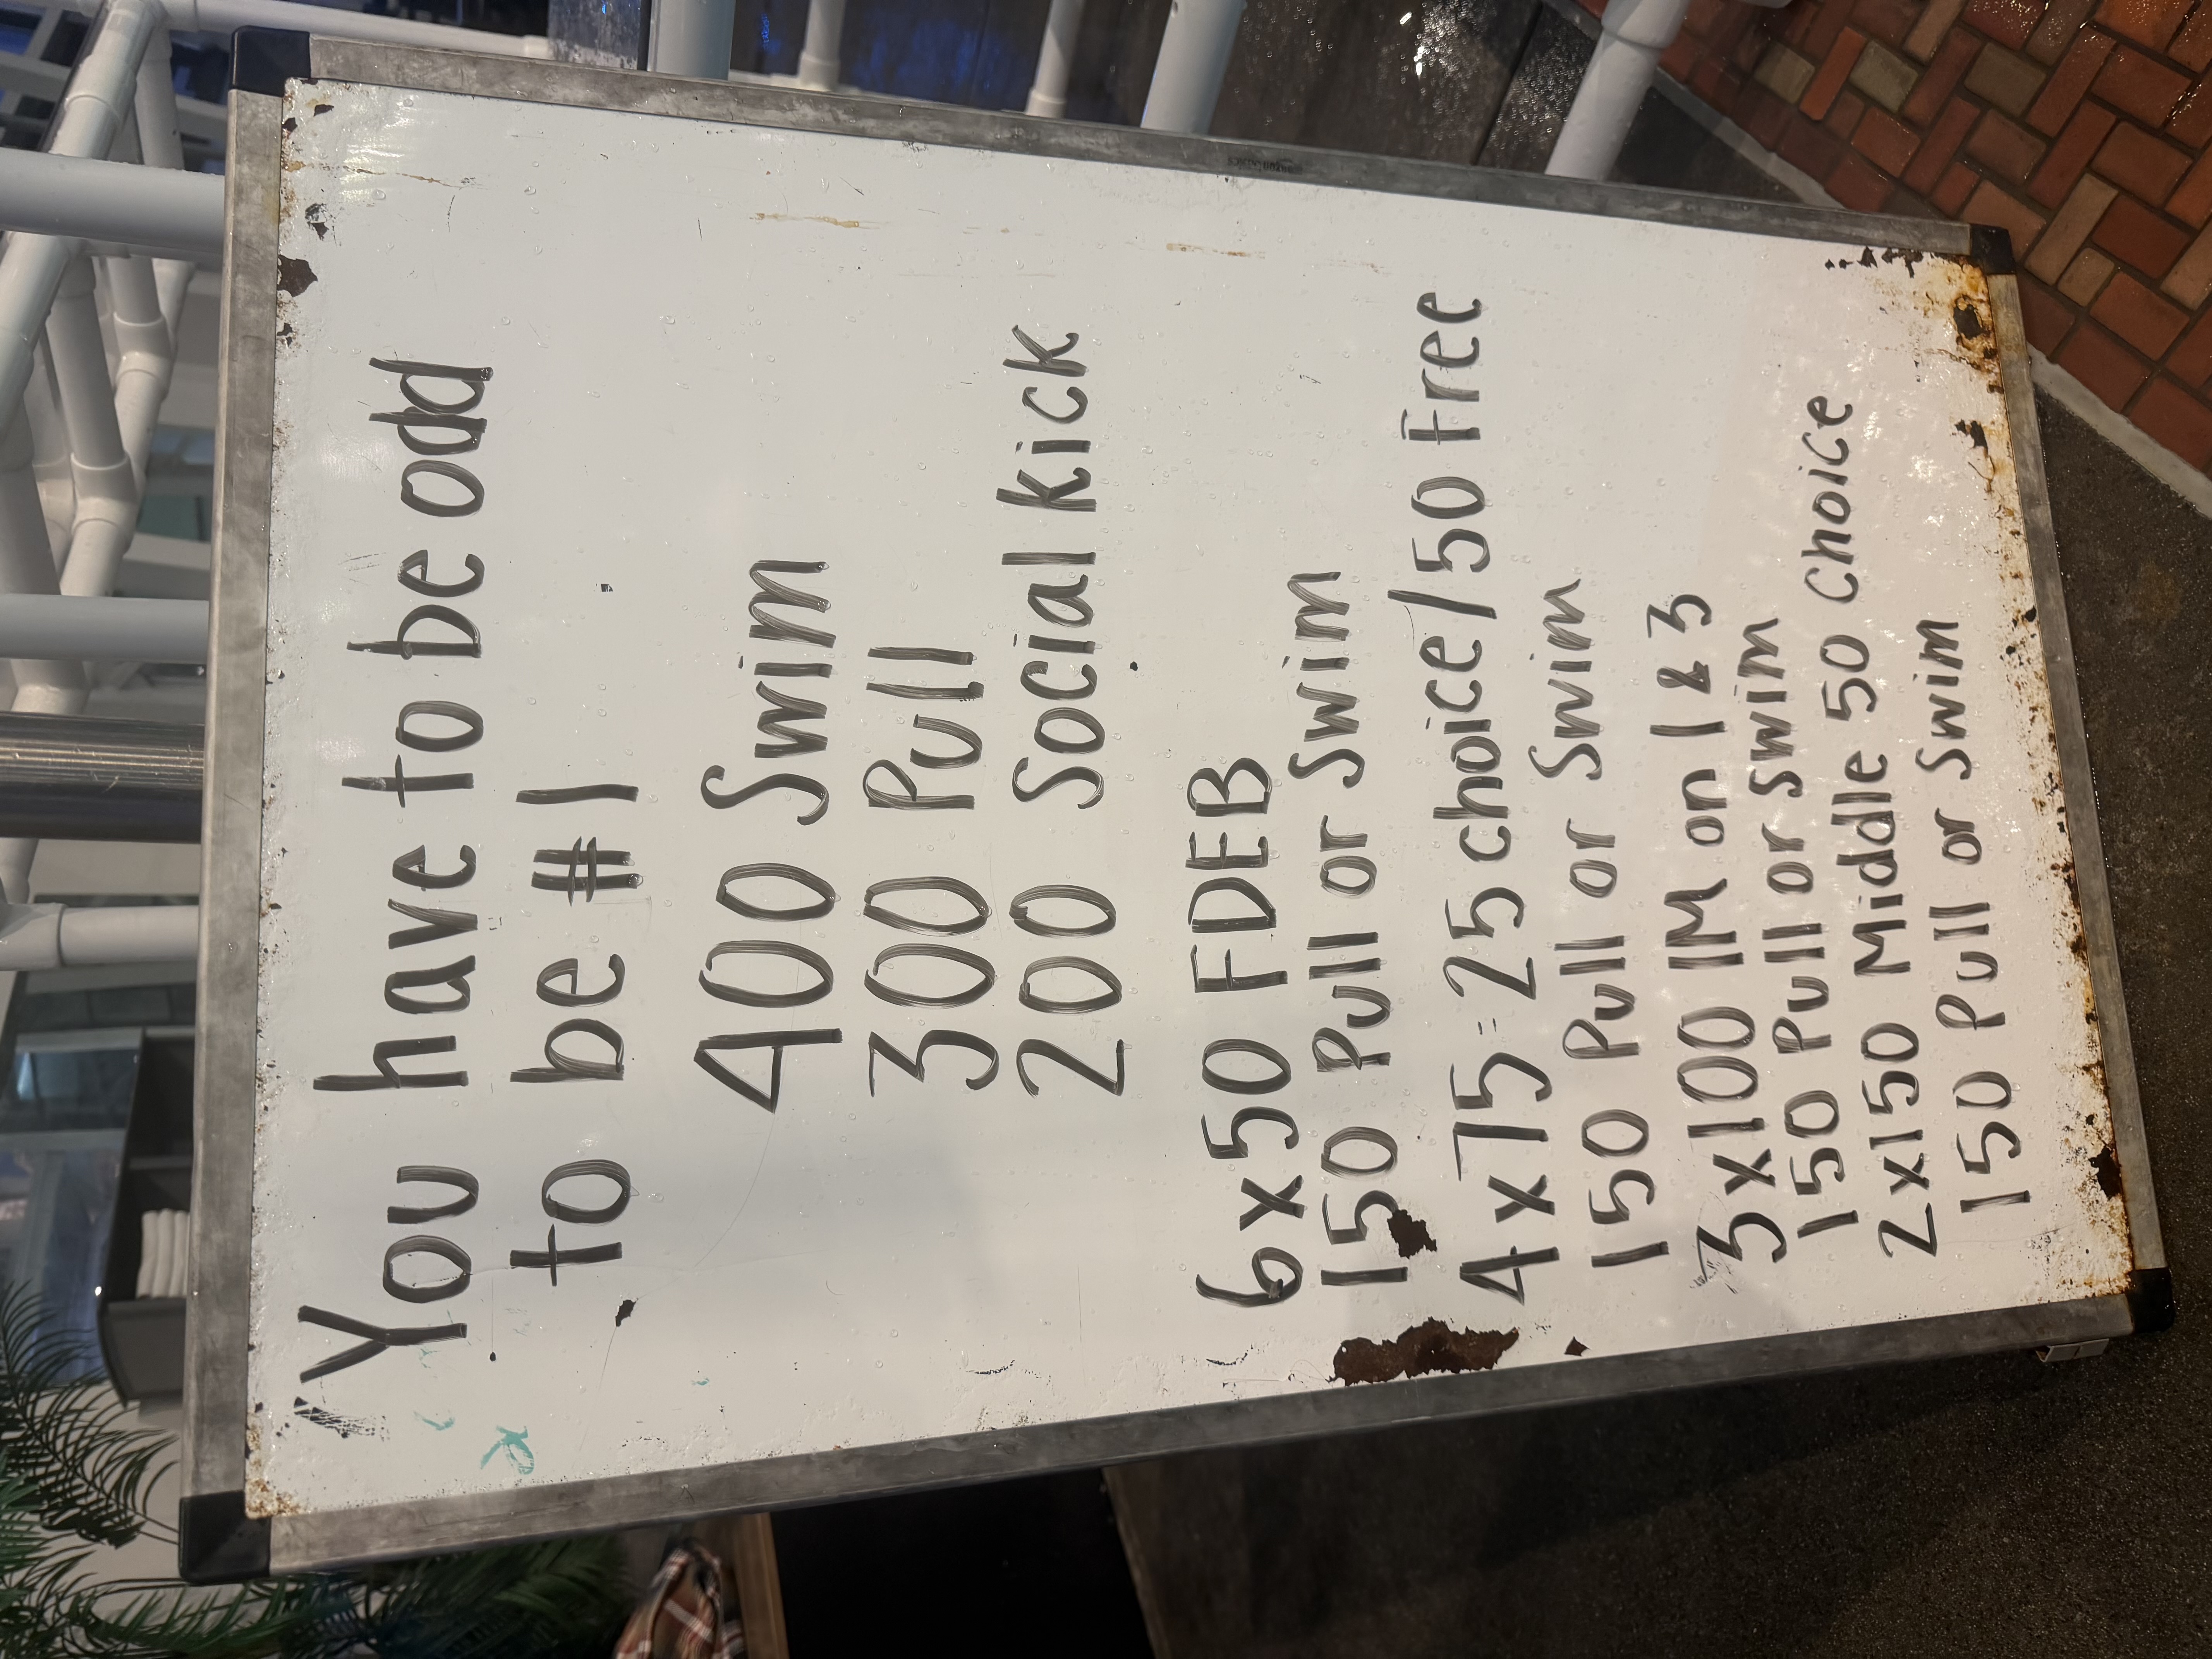 You have to be odd
to be #1
400 Swim
300 Pull
200 Social Kick
6x50 FDEB
150 Pull or Swim
4x75=25 choice/50 Free
150 Pull or Swim
3x100 IM on 1 & 3
150 Pull or swim
2x150 Middle 50 Choice
150 Pull or Swim